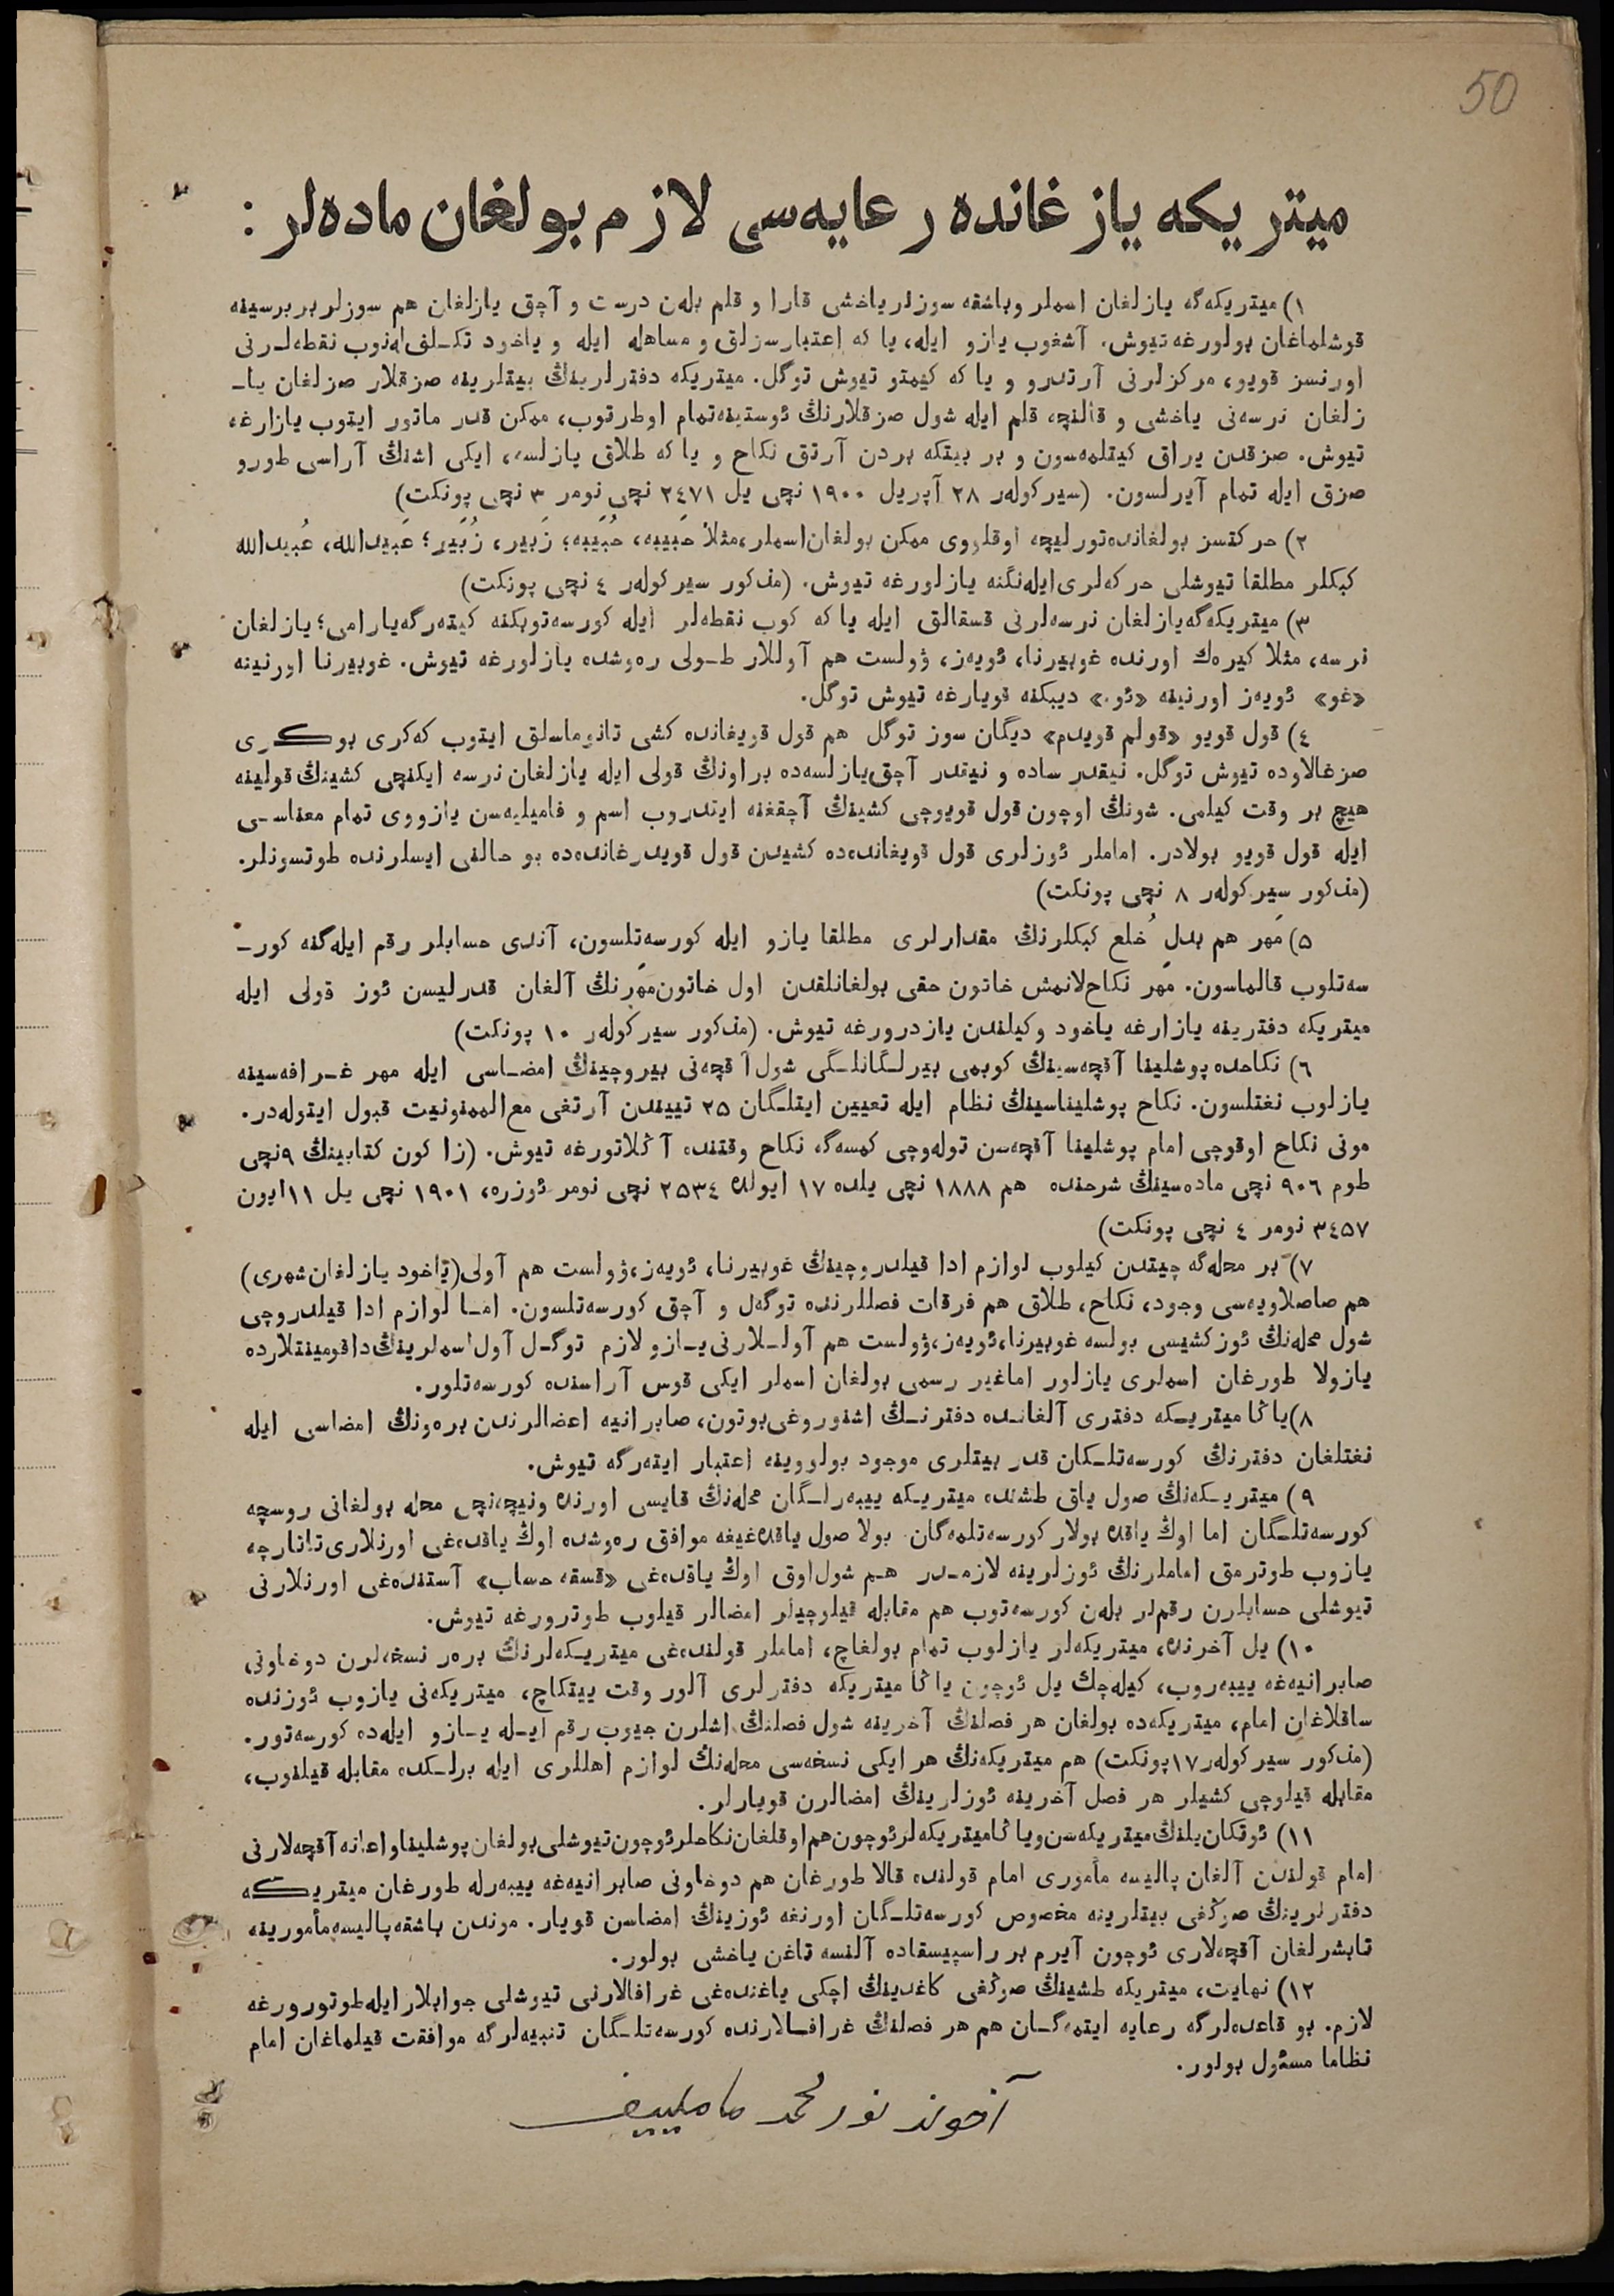 50
ميتريكه يازغانده رعايه‌سى لازم بولغان ماده‌لر :
١) ميتريكه‌گه يازلغان اسملر وباشقه سوزلر ياخشى قارا و قلم بلەن درست و آچق يازلغان هم سوزلر بر برسينه
قوشلماغان بولورغه تيوش. آشغوب يازو ايله، يا كه إعتبارسزلق و مساهله ايله و ياخود تكلف لەنوب نقطه‌لرنى
اورنسز قويو، مركزلرنى آرتدرو و يا كه كيمتو تيوش توگل. ميتريكه دفترلرينڭ بيتلرينه صزقلار صزلغان يا-
زلغان نرسه‌نى ياخشى و قالنچه قلم ايله شول صزقلارنڭ ئوستينه تمام اوطرتوب، ممكن قدر ماتور ايتوب يازارغه
تيوش. صزقدن يراق كيتلمه‌سون و بر بيتكه بردن آرتق نكاح و يا كه طلاق يازلسه، ايكى اشنڭ آراسى طورو
صزق ايله تمام آيرلسون. (سيركولەر ٢٨ آپريل ١٩٠٠ نچى يل ٢٤٧١ نچى نومر ٣ نچى پونكت)
٢) حركتسز بولغانده تورليچه اوقلووى ممكن بولغان اسملر، مثلاً حَبيبه، حُبَيبه؛ زَبير، زُبَير؛ عَبيدالله، عُبيدالله
كبكلر مطلقا تيوشلى حركه‌لرى ايله‌نگنه يازلورغه تيوش. (مذكور سيركولەر ٤ نچى پونكت)
٣) ميتريكه‌گه يازلغان نرسه‌لرنى قسقالق ايله يا كه كوب نقطه‌لر ايله كورسه‌توبكنه كيتەرگه يارامى؛ يازلغان
نرسه، مثلا كيره‌ك اورنده غوبيرنا، ئويەز، ۋولست هم آوللار طولى ره‌وشده يازلورغه تيوش. غوبيرنا اورنينه
«غو» ئويەز اورنينه «ئو.» ديبكنه قويارغه تيوش توگل.
٤) قول قويو «قولم قويدم» ديگان سوز توگل هم قول قويغانده كشى تانوماسلق ايتوب كەكرى بوكرى
صزغالاوده تيوش توگل. نيقدر ساده و نيقدر آچق يازلسه‌ده براونڭ قولى ايله يازلغان نرسه ايكنچى كشينڭ قولينه
هيچ بر وقت كيلمى. شونڭ اوچون قول قويوچى كشينڭ آچقغنه ايتدروب اسم و فاميليه‌سن يازووى تمام معناسى
ايله قول قويو بولادر. اماملر ئوزلرى قول قويغانده‌ده كشيدن قول قويدرغانده‌ده بو حالنى ايسلرنده طوتسونلر.
(مذكور سيركولەر ٨ نچى پونكت)
٥) مَهر هم بدلِ خُلع كبكلرنڭ مقدارلرى مطلقا يازو ايله كورسه‌تلسون، آندى حسابلر رقم ايله گنه كور-
سه‌تلوب قالماسون. مَهر نكاح‌لانمش خاتون حقى بولغانلقدن اول خاتون مَهرنڭ آلغان قدرليسن ئوز قولى ايله
ميتريكه دفترينه يازارغه ياخود وكيلندن يازدرورغه تيوش. (مذكور سيركولەر ١٠ پونكت)
٦) نكاحده پوشلينا آقچه‌سينڭ كوبمى بيرلگانلگى شول آقچه‌نى بيروچينڭ امضاسى ايله مهر غرافه‌سينه
يازلوب نغتلسون. نكاح پوشليناسينڭ نظام ايله تعيين ايتلگان ٢٥ تييندن آرتغى مع الممنونيت قبول ايتولەدر.
مونى نكاح اوقوچى امام پوشلينا آقچه‌سن تولەوچى كمسه‌گه نكاح وقتنده آڭلاتورغه تيوش. (زاكون كتابينڭ ٩نچى
طوم ٩٠٦ نچى ماده‌سينڭ شرحنده هم ١٨٨٨ نچى يلده ١٧ ايولده ٢٥٣٤ نچى نومر ئوزره، ١٩٠١ نچى يل ١١ ايون
٣٤٥٧ نومر ٤ نچى پونكت)
٧) بر محله‌گه چيتدن كيلوب لوازم ادا قيلدروچينڭ غوبيرنا، ئويەز، ۋولست هم آولى (ياخود يازلغان شهرى)
هم صاصلاويه‌سى وجود، نكاح، طلاق هم فرقات فصللرنده توگەل و آچق كورسه‌تلسون. اما لوازم ادا قيلدروچى
شول محله‌نڭ ئوز كشيسى بولسه غوبيرنا، ئويەز، ۋولست هم آوللارنى يازو لازم توگل آول اسملرينڭ داقومينتلارده
يازولا طورغان اسملرى يازلور اما غير رسمى بولغان اسملر ايكى قوس آراسنده كورسه‌تلور.
٨) ياڭا ميتريكه دفترى آلغانده دفترنڭ اشنوروغى بوتون، صابرانيه اعضالرندن بره‌ونڭ امضاسى ايله
نغتلغان دفترنڭ كورسه‌تلگان قدر بيتلرى موجود بولووينه اعتبار ايتەرگه تيوش.
٩) ميتريكه‌نڭ صول ياق طشنده ميتريكه ييبەرلگان محله‌نڭ قايسى اورنده ونيچەنچى محله بولغانى روسچه
كورسه‌تلگان اما اوڭ ياقده بولار كورسه‌تلمه‌گان. بولا صول ياقده‌غيغه موافق ره‌وشده اوڭ ياقده‌غى اورنلارى تاتارچه
يازوب طوترمق اماملرنڭ ئوزلرينه لازمدر هم شول اوق اوڭ ياقده‌غى «قسقه حساب» آستنده‌غى اورنلارنى
تيوشلى حسابلرن رقملر بلەن كورسه‌توب هم مقابله قيلوچيلر امضالر قيلوب طوترورغه تيوش.
١٠) يل آخرنده، ميتريكه‌لر يازلوب تمام بولغاچ، اماملر قولنده‌غى ميتريكه‌لرنڭ بره‌ر نسخه‌لرن دوخاونى
صابرانيه‌غه ييبه‌روب، كيله‌چك يل ئوچون ياڭا ميتريكه دفترلرى آلور وقت ييتكاچ، ميتريكه‌نى يازوب ئوزنده
ساقلاغان امام، ميتريكه‌ده بولغان هر فصلنڭ آخرينه شول فصلنڭ اشلرن جيوب رقم ايله يازو ايله‌ده كورسه‌تور.
(مذكور سيركولەر ١٧ پونكت) هم ميتريكه‌نڭ هر ايكى نسخه‌سى محله‌نڭ لوازم اهللرى ايله برلكده مقابله قيلنوب،
مقابله قيلوچى كشيلر هر فصل آخرينه ئوزلرينڭ امضالرن قويارلر.
١١) ئوتكان يلنڭ ميتريكه‌سن و ياڭا ميتريكه‌لر ئوچون هم اوقلغان نكاحلر ئوچون تيوشلى بولغان پوشلينا و اعانه آقچه‌لارنى
امام قولندن آلغان پاليسه مأمورى امام قولنده قالا طورغان هم دوخاونى صابرانيه‌غه ييبه‌رله طورغان ميتريكه
دفترلرينڭ صوڭغى بيتلرينه مخصوص كورسه‌تلگان اورنغه ئوزينڭ امضاسن قويار. موندن باشقه پاليسه مأمورينه
تابشرلغان آقچه‌لارى ئوچون آيرم بر راسپيسقاده آلنسه تاغن ياخشى بولور.
١٢) نهايت، ميتريكه طشينڭ صوڭغى كاغدينڭ اچكى ياغنده‌غى غرافالارنى تيوشلى جوابلار ايله طوتورورغه
لازم. بو قاعده‌لرگه رعايه ايتمه‌گان هم هر فصلنڭ غرافالارنده كورسه‌تلگان تنبيه‌لرگه موافقت قيلماغان امام
نظاما مسئول بولور.
آخوند نورمحمد ماملييف